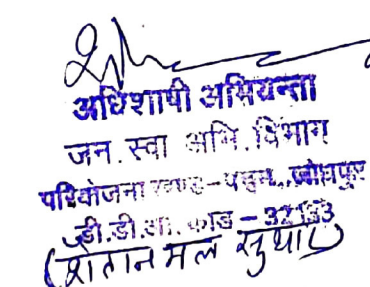 अधिशाषी अभियन्ता
जन. स्वा अभि. विभाग
परियोजना खण्ड-पथम, जोधपुर
डी.डी.ओ. कोड - 32133
(शैतान मल सुथार)